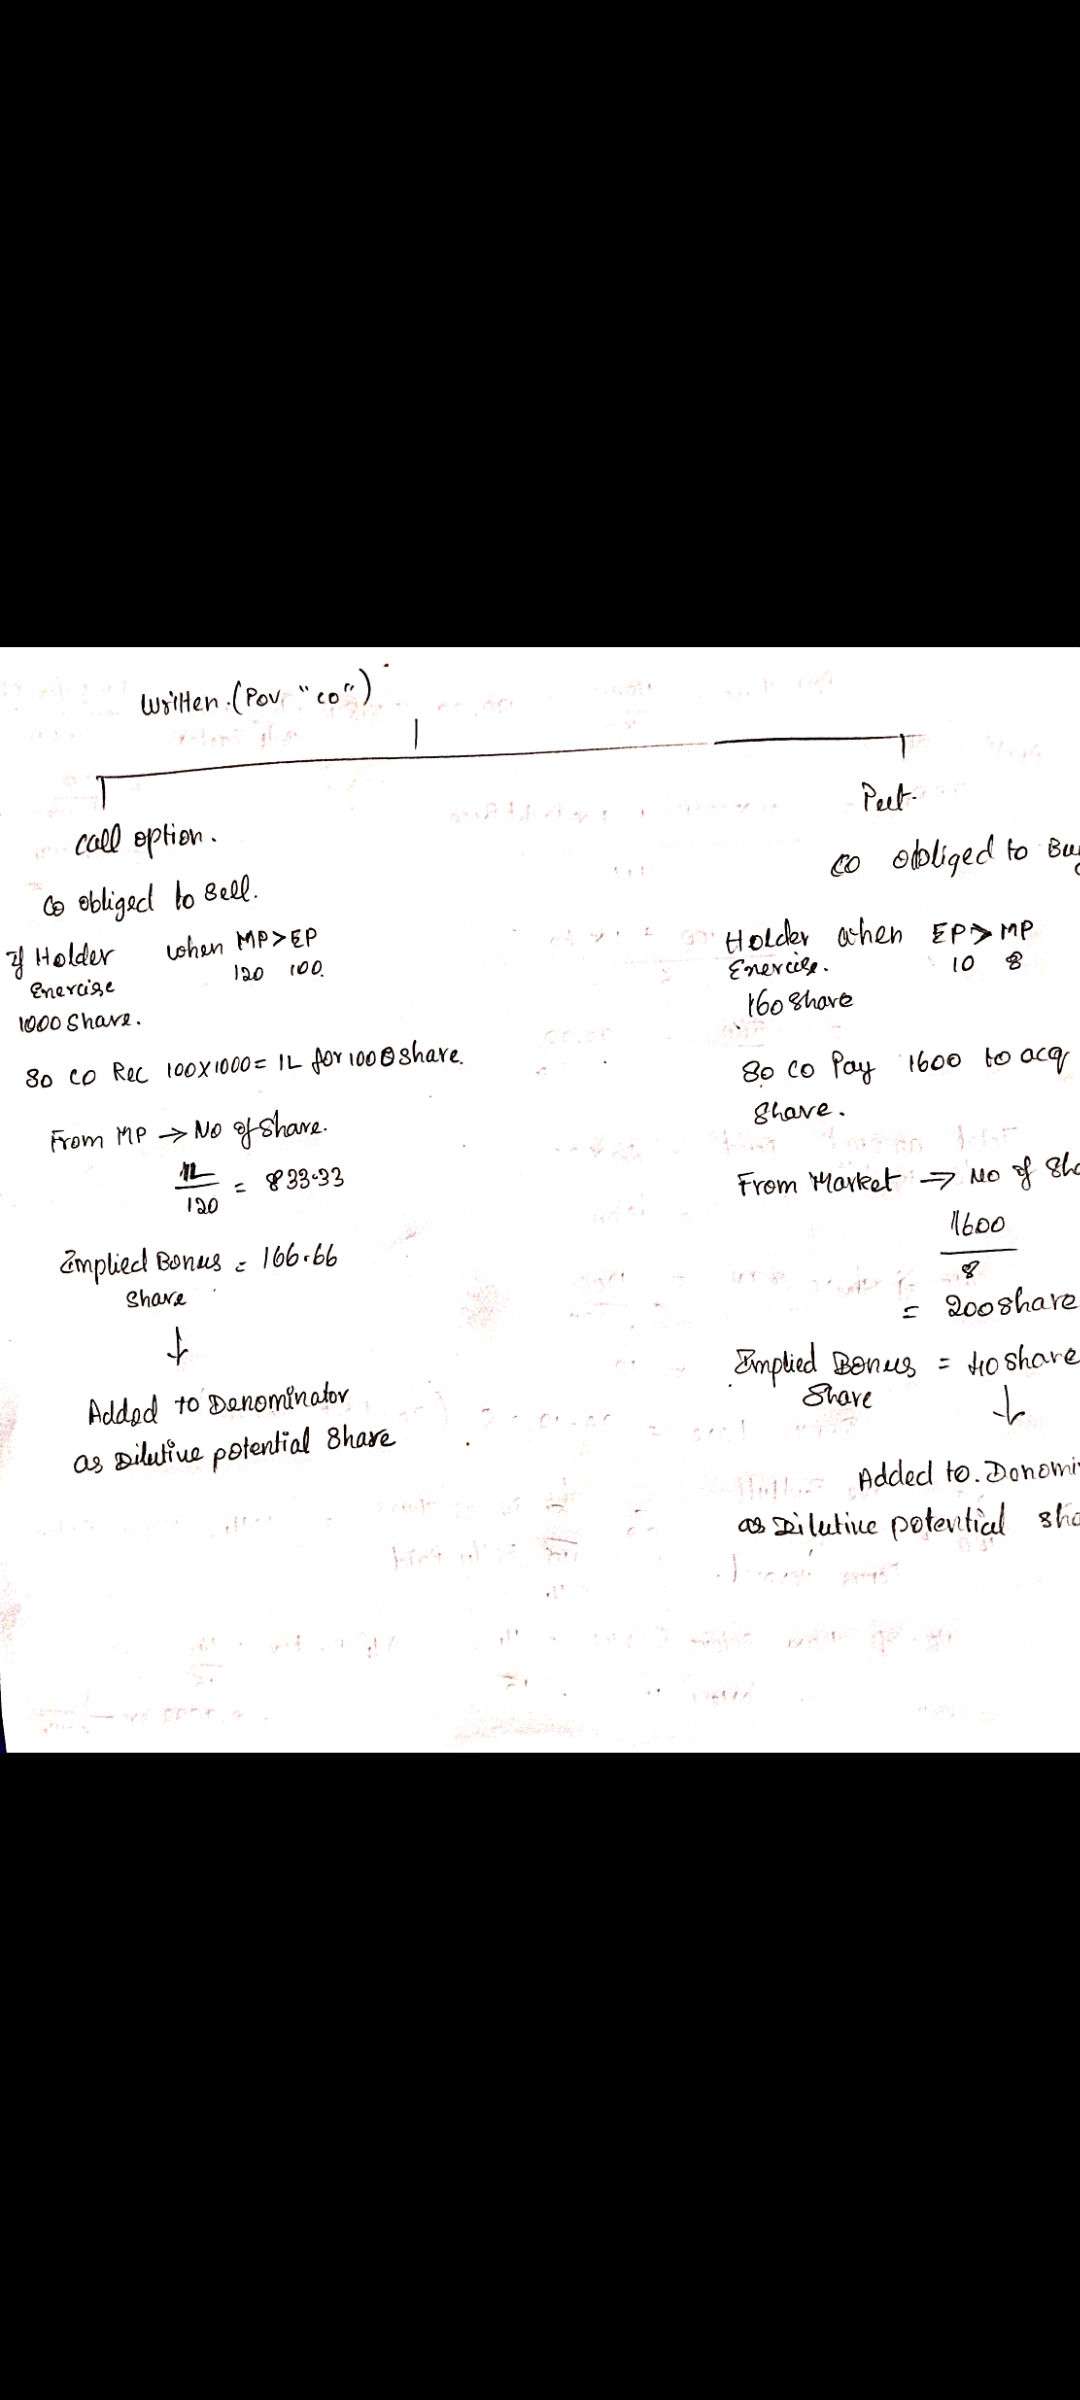 Written.(Pov. "co")
call option.
Co obliged to Sell.
If Holder when MP>EP
Exercise 120 100.
1000 Share.
So co Rec 100x1000= 1L for 1000 share.
From MP → No of Share.
1L
120 = 833.33
Implied Bonus = 166.66
Share
↓
Added to Denominator
as Dilutive potential Share
Put.
co obliged to Buy
Holder when EP>MP
Exercise. 10 8
160 Share
So co Pay 1600 to acq
Share.
From Market → No of Sha
1600
8
= 200 share
Implied Bonus = 40 share
Share ↓
Added to. Denomi
as Dilutive potential sha